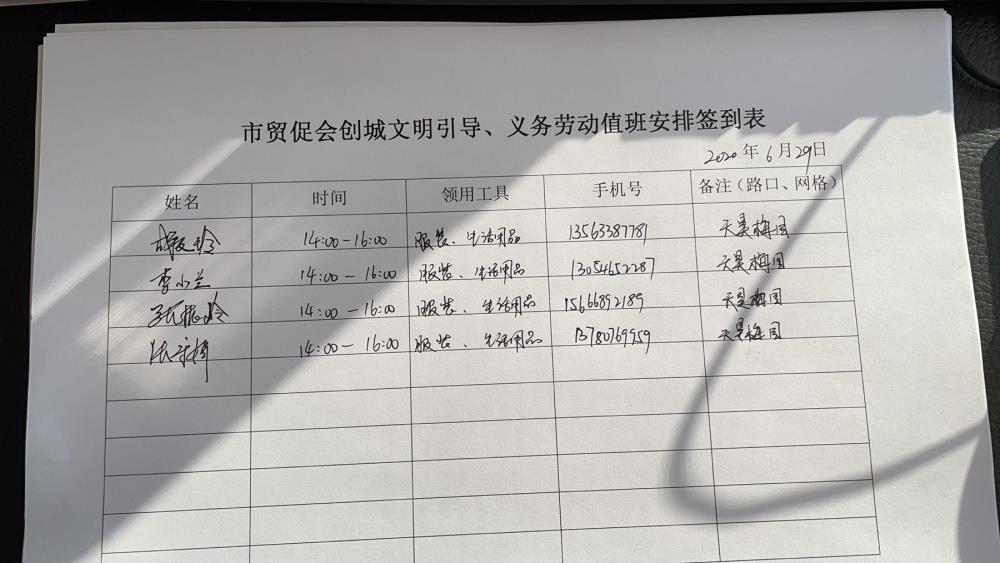 市贸促会创城文明引导、义务劳动值班安排签到表
2020年6月29日
姓名 时间 领用工具 手机号 备注(路口、网格)
14:00-16:00 服装、生活用品 13563387781 天昊梅园
李小兰 14:00-16:00 服装、生活用品 13054652287 天昊梅园
14:00-16:00 服装、生活用品 15666892189 天昊梅园
14:00-16:00 服装、生活用品 13780769959 天昊梅园